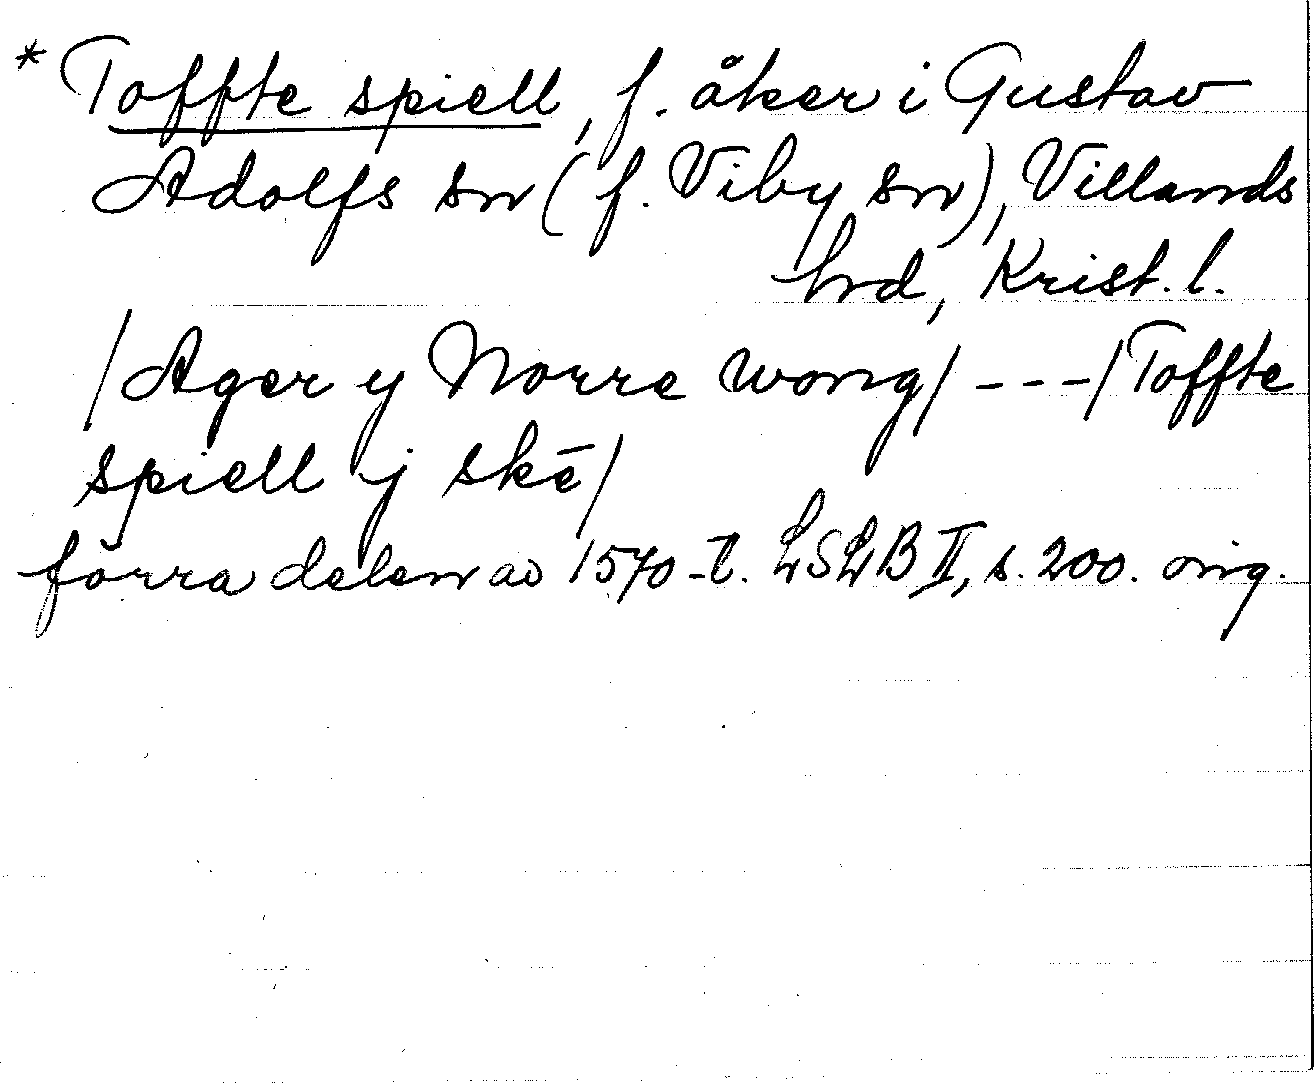 * Toffte spiell, f. åker i Gustav
Adolfs sn (f. Viby sn), Villands
hrd, Krist. l.
/Ager y Norre wong/ - - - /Toffte
spiell j skē/
förra delen av 1570-t. LSLB II, s. 200. orig.